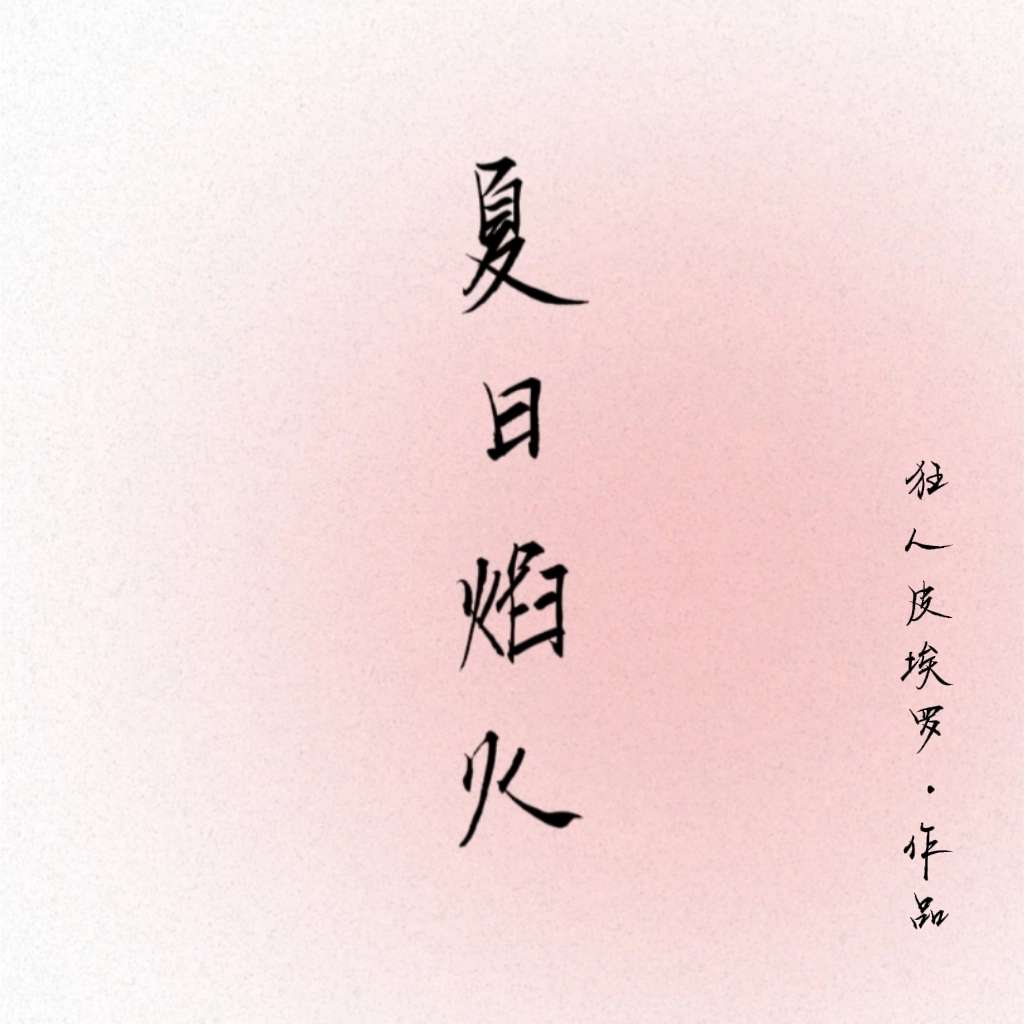 夏日焰火
狂人皮埃罗·作品